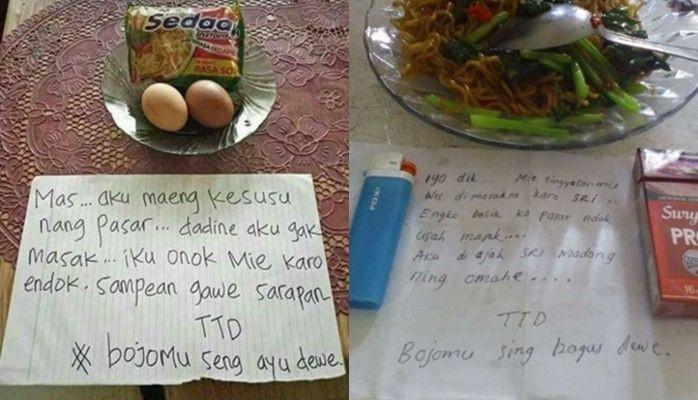 Sedaap
instant
RASA SOTO
Mas... aku maeng kesusu
nang pasar... dadine aku gak
masak... iku onok Mie karo
endok. sampean gawe sarapan
TTD
bojoMu seng ayu dewe.
FOXY
Iyo dik... Mie tinggalanmu
wis di masakne karo SRI...
Engko balik ko pasar ndak
usah masak....
Aku di ajak SRI madang
ning omahe....
TTD
Bojomu sing bagus dewe.
Surya
PRO
16